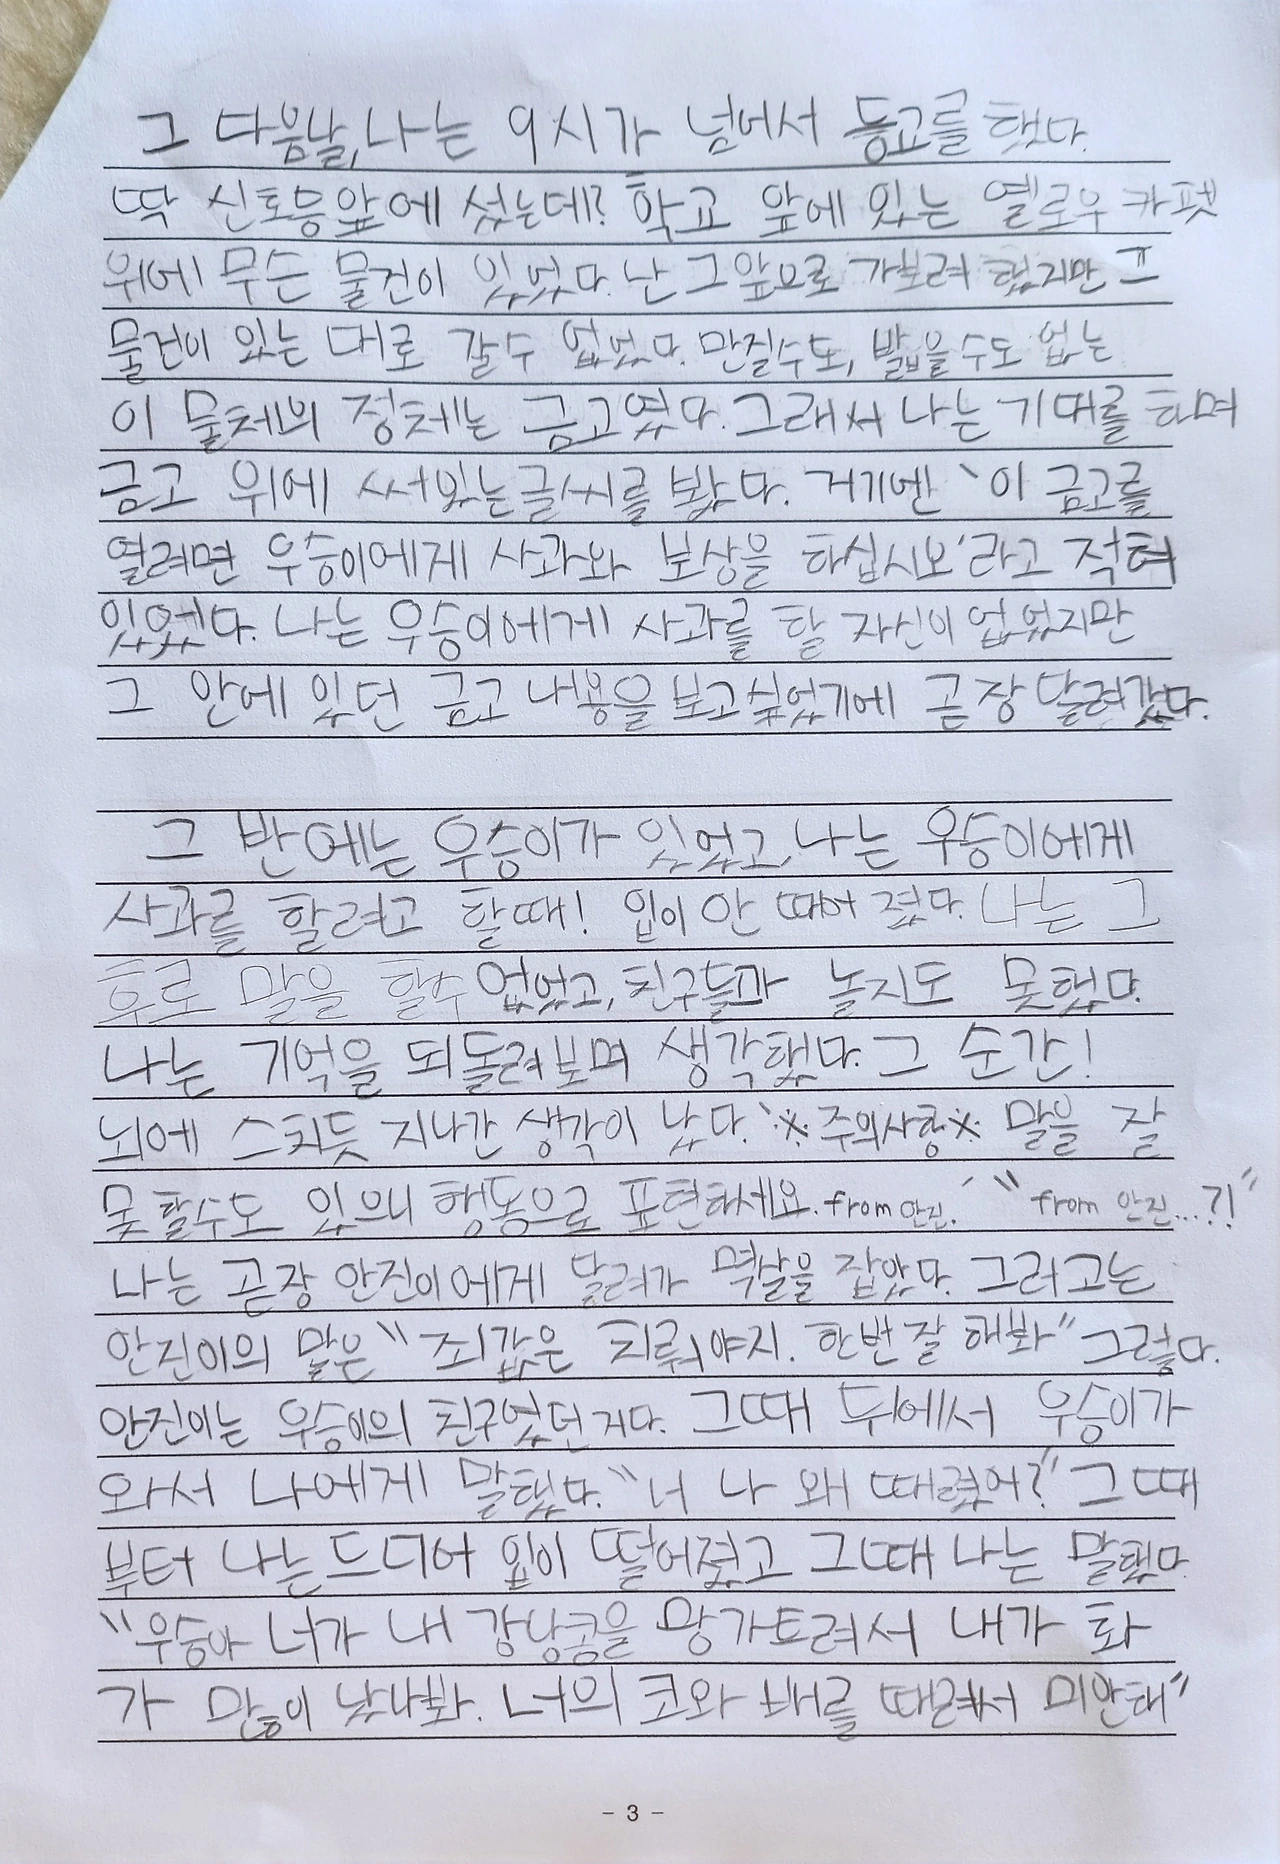 그 다음날, 나는 9시가 넘어서 등교를 했다.
딱 신호등앞에 섰는데? 학교 앞에 있는 옐로우 카펫
위에 무슨 물건이 있었다. 난 그앞으로 가보려 했지만 그
물건이 있는 대로 갈수 없었다. 만질수도, 밟을수도 없는
이 물체의 정체는 금고였다. 그래서 나는 기대를 하며
금고 위에 써있는글씨를 봤다. 거기엔 '이 금고를
열려면 우승이에게 사과와 보상을 하십시오'라고 적혀
있었다. 나는 우승이에게 사과를 할 자신이 없었지만
그 안에 있던 금고 내용을 보고싶었기에 곧장 달려갔다.
그 반에는 우승이가 있었고, 나는 우승이에게
사과를 할려고 할때! 입이 안 떼어 졌다. 나는 그
후로 말을 할수 없었고, 친구들과 놀지도 못했다.
나는 기억을 되돌려보며 생각했다. 그 순간!
뇌에 스치듯 지나간 생각이 났다. '※주의사항※ 말을 잘
못 할수도 있으니 행동으로 표현하세요. from 안진.' "from 안진...?!"
나는 곧장 안진이에게 달려가 멱살을 잡았다. 그러고는
안진이의 말은 "죄값은 치뤄야지. 한번 잘 해봐" 그렇다.
안진이는 우승이의 친구였던 거다. 그때 뒤에서 우승이가
와서 나에게 말했다. "너 나 왜 때렸어?" 그 때
부터 나는 드디어 입이 떨어졌고 그때 나는 말했다.
"우승아 너가 내 강낭콩을 망가트려서 내가 화
가 많이 났나봐. 너의 코와 배를 때려서 미안해"
- 3 -